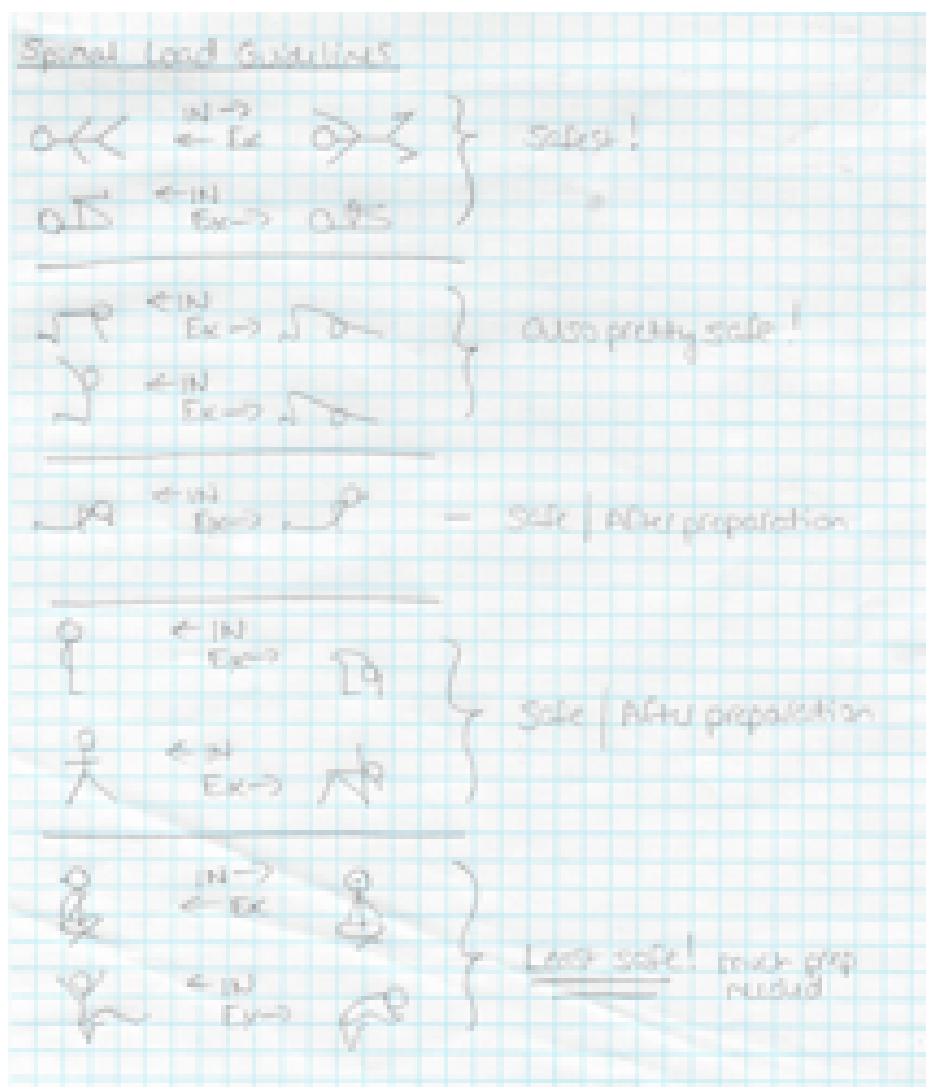 Spinal Load Guidelines
IN →
← Ex
Safest!
← IN
Ex →
← IN
Ex →
also pretty safe!
← IN
Ex →
← IN
Ex →
- Safe | After preparation
← IN
Ex →
Safe | After preparation
← IN
Ex →
IN →
← Ex
Least safe! much prep
needed
← IN
Ex →